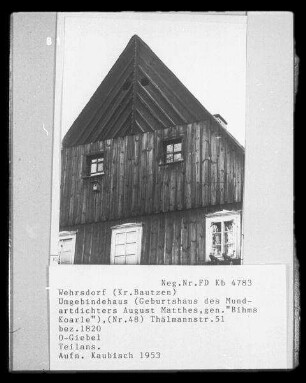 Neg.Nr.FD Kb 4783
Wehrsdorf (Kr.Bautzen)
Umgebindehaus (Geburtshaus des Mund-
artdichters August Matthes,gen."Bihms
Koarle"),(Nr.48) Thälmannstr.51
bez.1820
O-Giebel
Teilans.
Aufn. Kaubisch 1953